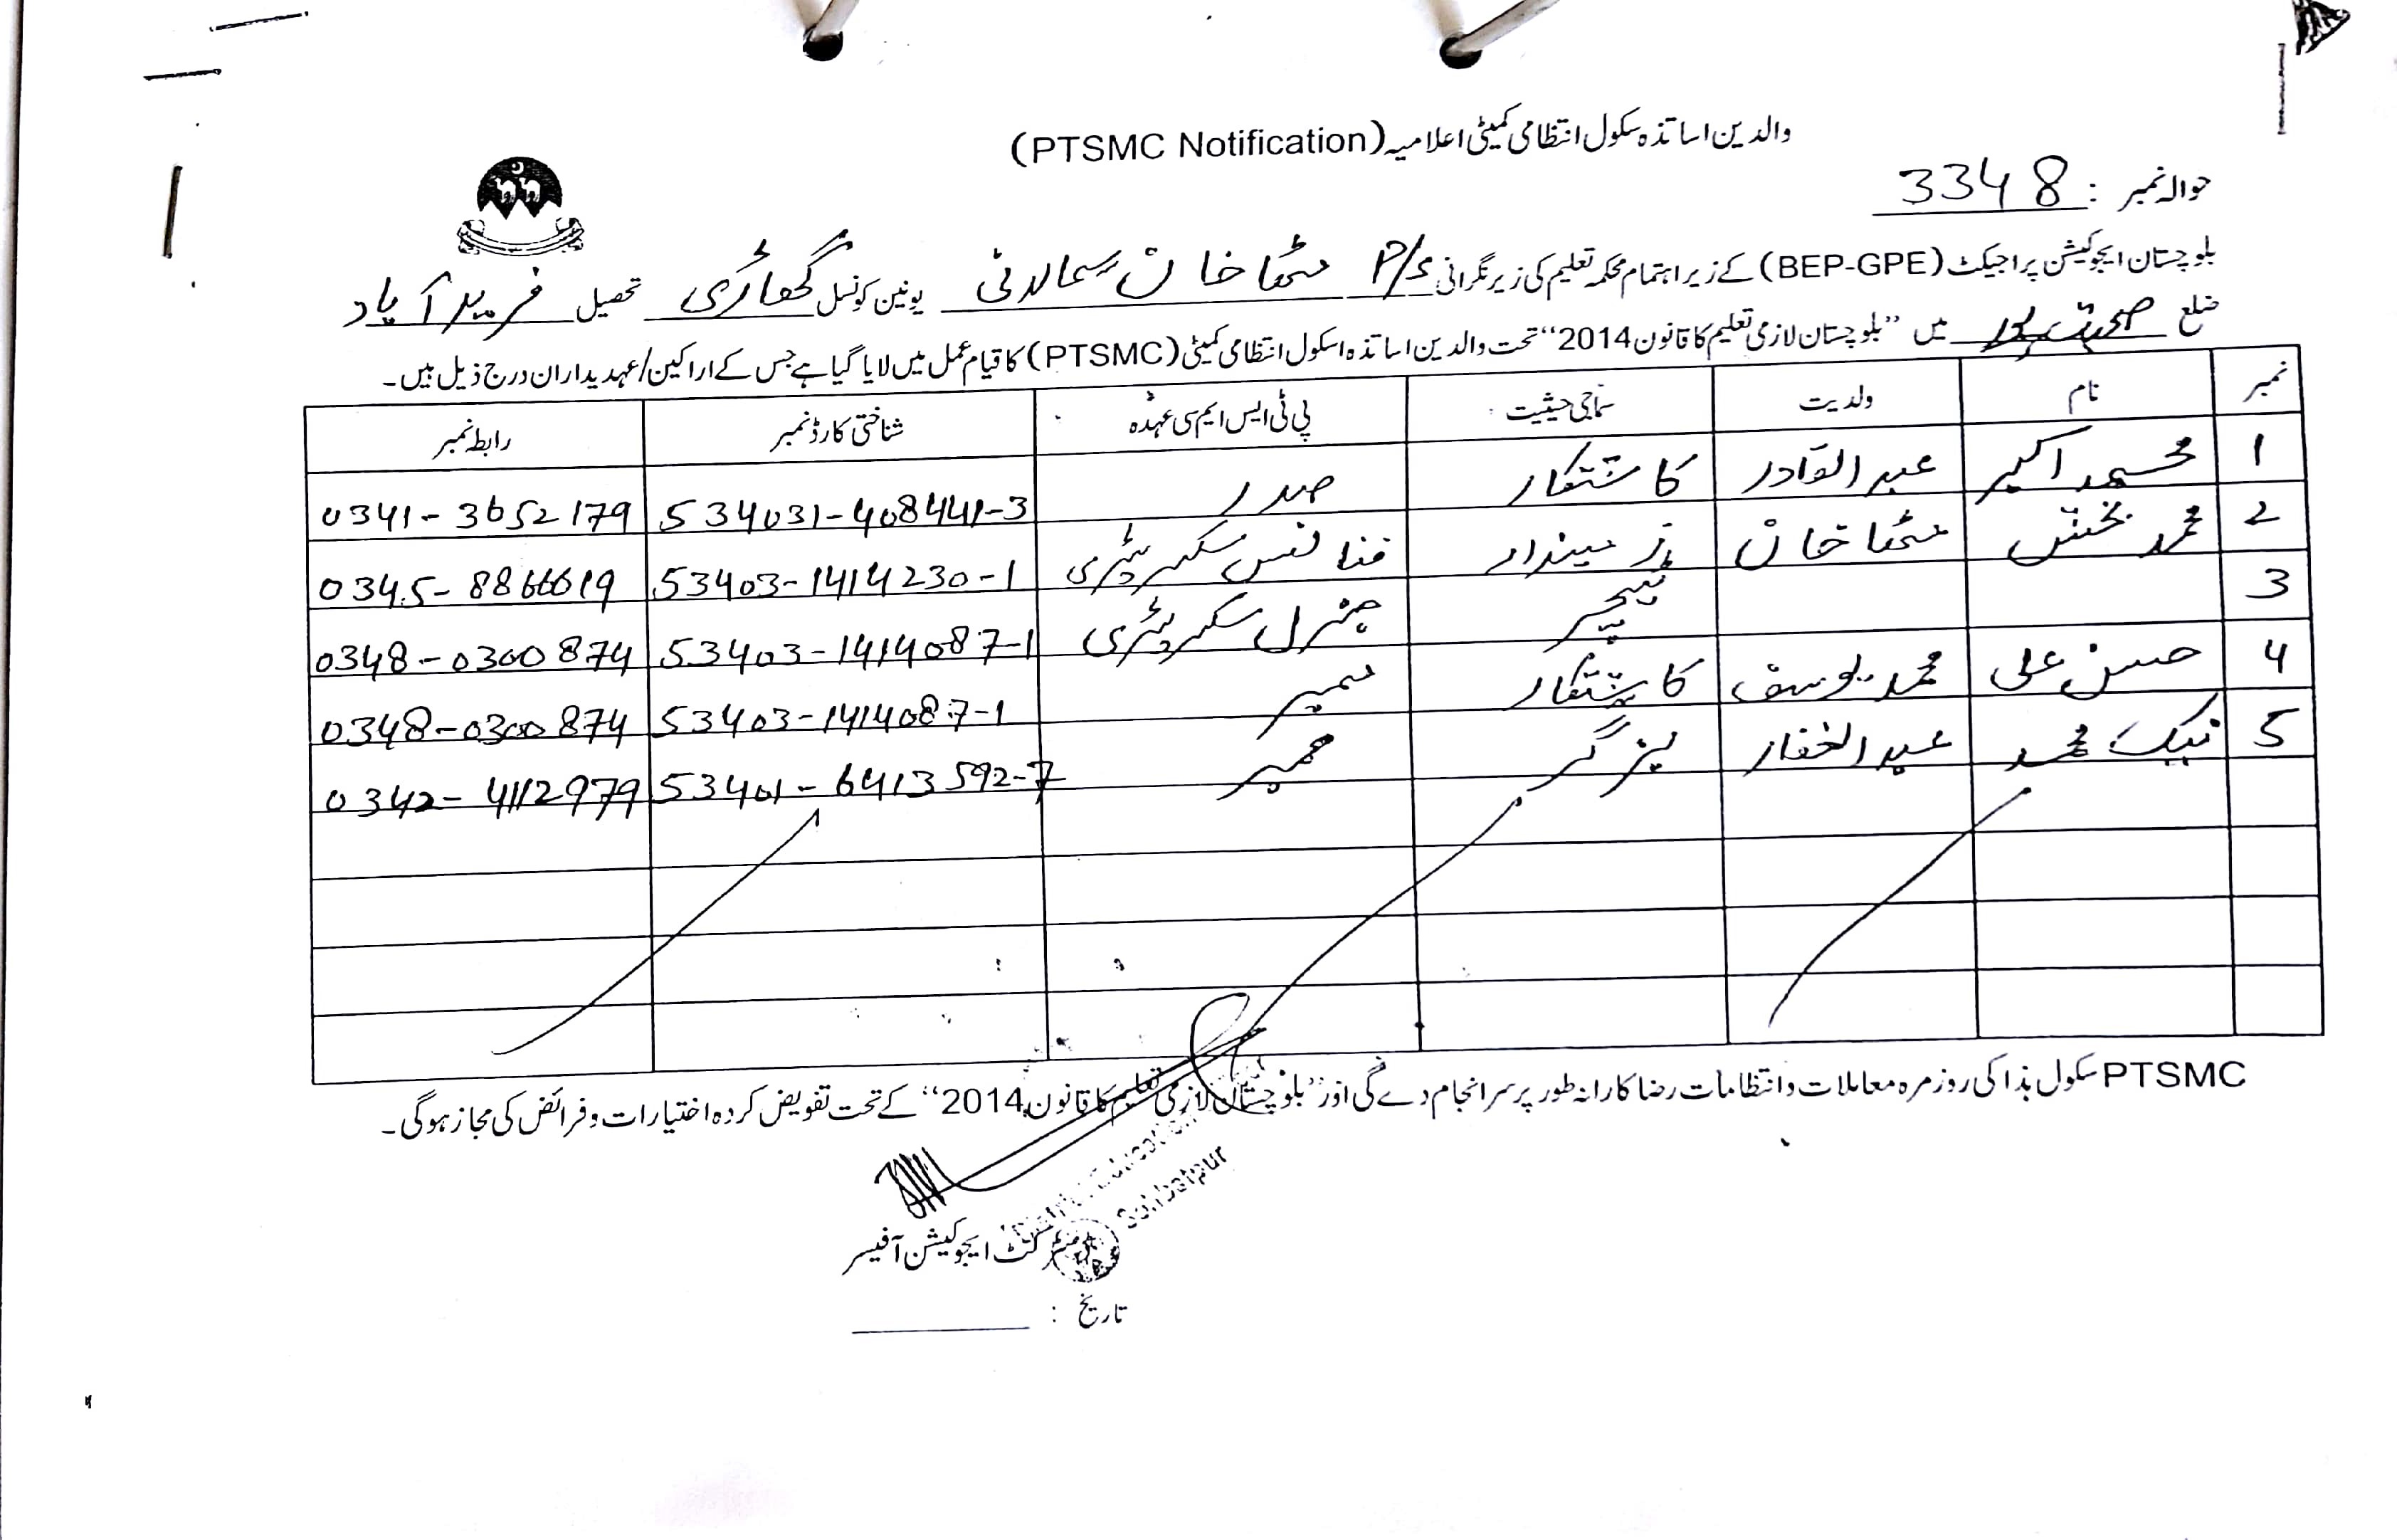 والدین اساتذہ سکول انتظامی کمیٹی اعلامیہ (PTSMC Notification)
حوالہ نمبر : 3348
بلوچستان ایجوکیشن پراجیکٹ (BEP-GPE) کے زیر اہتمام محکمہ تعلیم کی زیر نگرانی P/S مٹھا خان سمالانی یونین کونسل گھاڑی تحصیل فرید آباد
ضلع صحبت پور میں ”بلوچستان لازمی تعلیم کا قانون 2014“ تحت والدین اساتذہ اسکول انتظامی کمیٹی (PTSMC) کا قیام عمل میں لایا گیا ہے جس کے اراکین/عہدیداران درج ذیل ہیں۔
نمبر نام ولدیت سماجی حیثیت پی ٹی ایس ایم سی عہدہ شناختی کارڈ نمبر رابطہ نمبر
1 محمد اکبر عبدالقادر کاشتکار صدر 534031-408441-3 0341-3652179
2 محمد بخش مٹھا خان زمیندار فنانس سکریٹری 53403-1414230-1 0345-8866619
3 ٹیچر جنرل سکریٹری 53403-1414087-1 0348-0300874
4 حسن علی محمد یوسف کاشتکار ممبر 53403-1414087-1 0348-0300874
5 نیک محمد عبدالغفار بزگر ممبر 53401-6413592-7 0342-4112979
PTSMC سکول ہذا کی روزمرہ معاملات و انتظامات رضاکارانہ طور پر سرانجام دے گی اور ”بلوچستان لازمی تعلیم کا قانون 2014“ کے تحت تفویض کردہ اختیارات و فرائض کی مجاز ہوگی۔
Sohbatpur
ڈسٹرکٹ ایجوکیشن آفیسر
تاریخ :